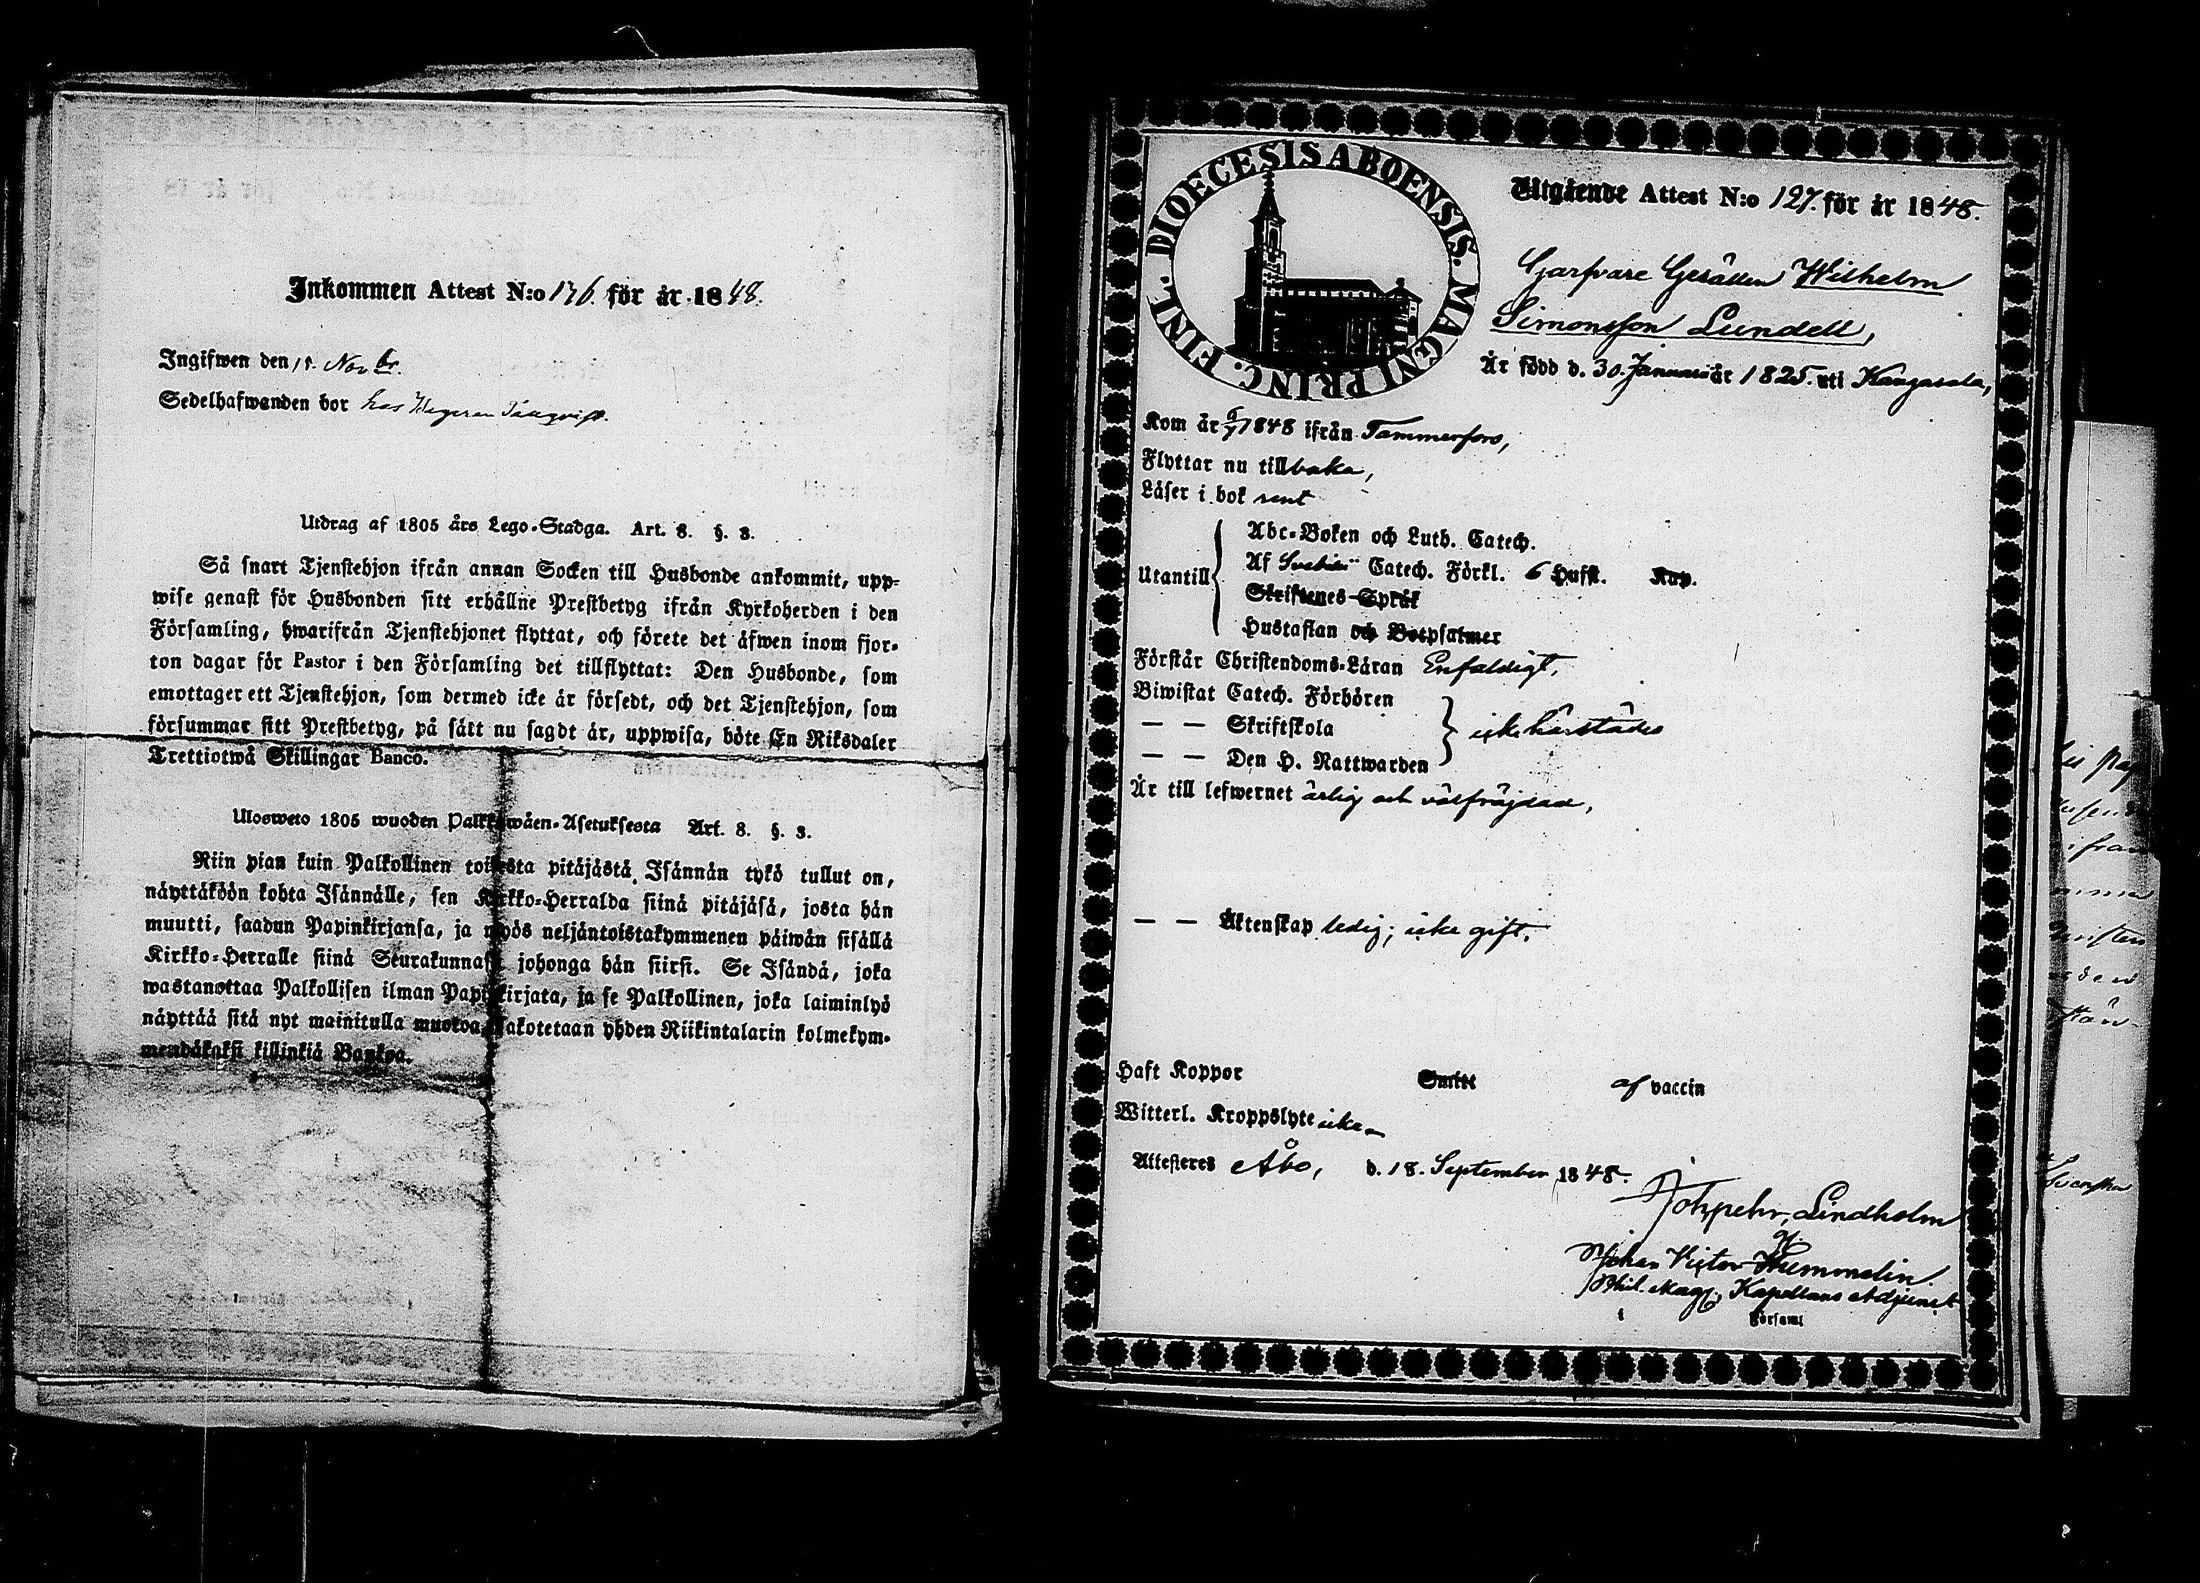 Inkommen Attest N:o 176. för år 1848.
Ingifwen den 15. Novbr.
Sedelhafwanden bor hos
Utdrag af 1805 års Lego-Stadga. Art. 8. §. 3.
Så snart Tjenstehjon ifrån annan Socken till Husbonde ankommit, upp-
wise genast för Husbonden sitt erhållne Prestbetyg ifrån Kyrkoherden i den
Församling, hwarifrån Tjenstehjonet flyttat, och förete det äfwen inom fjor-
ton dagar för Pastor i den Församling det tillflyttat: Den Husbonde, som
emottager ett Tjenstehjon, som dermed icke är försedt, och det Tjenstehjon, som
försummar sitt Prestbetyg, på sätt nu sagdt är, uppwisa, böte En Riksdaler
Trettiotwå Skillingar Banco.
Ulosweto 1805 wuoden Palkkawäen-Asetuksesta Art. 8. §. 3.
Niin pian kuin Palkollinen toisesta pitäjästä Isännän tykö tullut on,
näyttäköön kohta Isännälle, sen Kirkko-Herralda siinä pitäjäsä, josta hän
muutti, saadun Papinkirjansa, ja myös neljäntoistakymmenen päiwän sisällä
Kirkko-Herralle siinä Seurakunnasa johonga hän siirsi. Se Isändä, joka
wastanottaa Palkollisen ilman Papinkirjata, ja se Palkollinen, joka laiminlyö
näyttää sitä nyt mainitulla muotoa, sakotetaan yhden Riikintalarin kolmekym-
mendäkaksi killinkiä Bankoa.
DIOECESIS ABOENSIS. MAGNI PRINC. FINL.
Utgående Attest N:o 127. för år 1848.
Garfvare Gesällen Wilhelm
Simonsson Lundell,
Är född d. 30. Januari år 1825. uti Kangasala,
Kom år 1848 ifrån Tammerfors,
Flyttar nu tillbaka,
Läser i bok rent
Utantill
Abc-Boken och Luth. Catech.
Af Svebilii Catech. Förkl. 6 Hufst. Kap.
Skriftenes-Språk
Hustaflan och Botpsalmer
Förstår Christendoms-Läran Enfaldigt,
Biwistat Catech. Förhören
— — Skriftskola
icke härstädes
— — Den H. Nattwarden
Är till lefwernet ärlig och välfräjdad,
— — Äktenskap ledig; icke gift,
Haft Koppor Smitt af vaccin
Witterl. Kroppslyte icke
Attesteres Åbo, d. 18. September 1848.
Lindholm
Johan Victor Hummelin.
Phil. Mag., Kapellans Adjunct
Församl